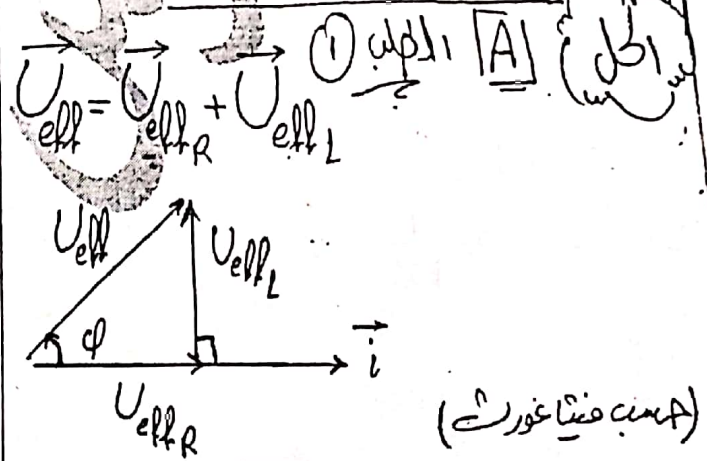 الحل A الطلب ①
$\vec{U}_{eff} = \vec{U}_{eff_R} + \vec{U}_{eff_L}$
U_{eff} U_{eff_L}
φ $\vec{i}$
U_{eff_R}
(حسب فيثاغورث)